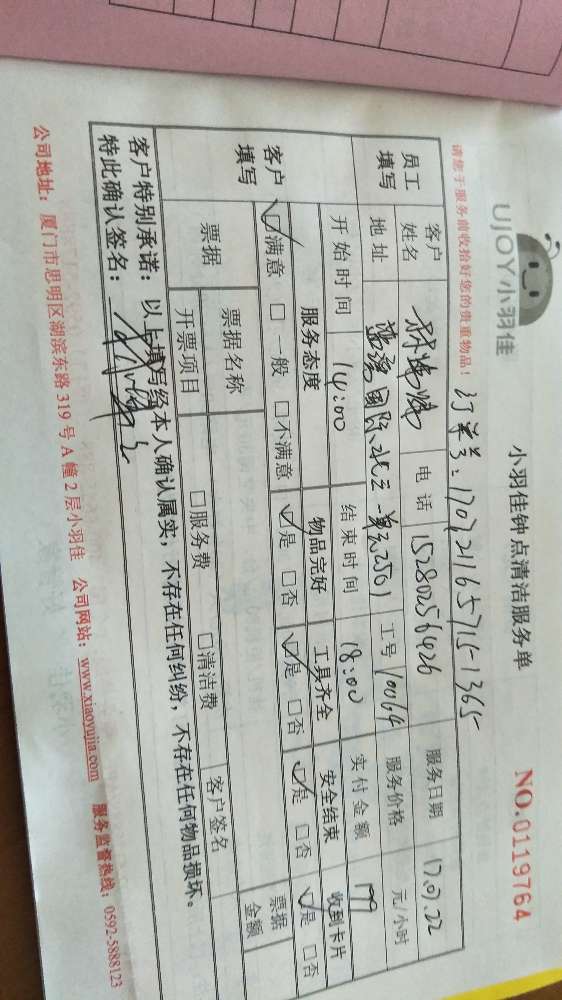 UJOY小羽佳
小羽佳钟点清洁服务单
NO.0119764
请您于服务前收拾好您的贵重物品！
订单号：170721165715-1365
员工填写
客户姓名
电话 15280256426
服务日期 17.07.22
地址
国际 2501
工号 10064
服务价格 元/小时
客户填写
开始时间 14:00
结束时间 18:00
实付金额 199
服务态度 物品完好 工具齐全 安全结束 收到卡片
☑满意 □一般 □不满意 ☑是 □否 ☑是 □否 ☑是 □否 ☑是 □否
票据
票据名称
客户签名
票据金额
开票项目 □服务费 □清洁费
客户特别承诺：以上填写经本人确认属实，不存在任何纠纷，不存在任何物品损坏。
特此确认签名：
公司地址：厦门市思明区湖滨东路319号A幢2层小羽佳 公司网站：www.xiaoyujia.com 服务监督热线：0592-5888123